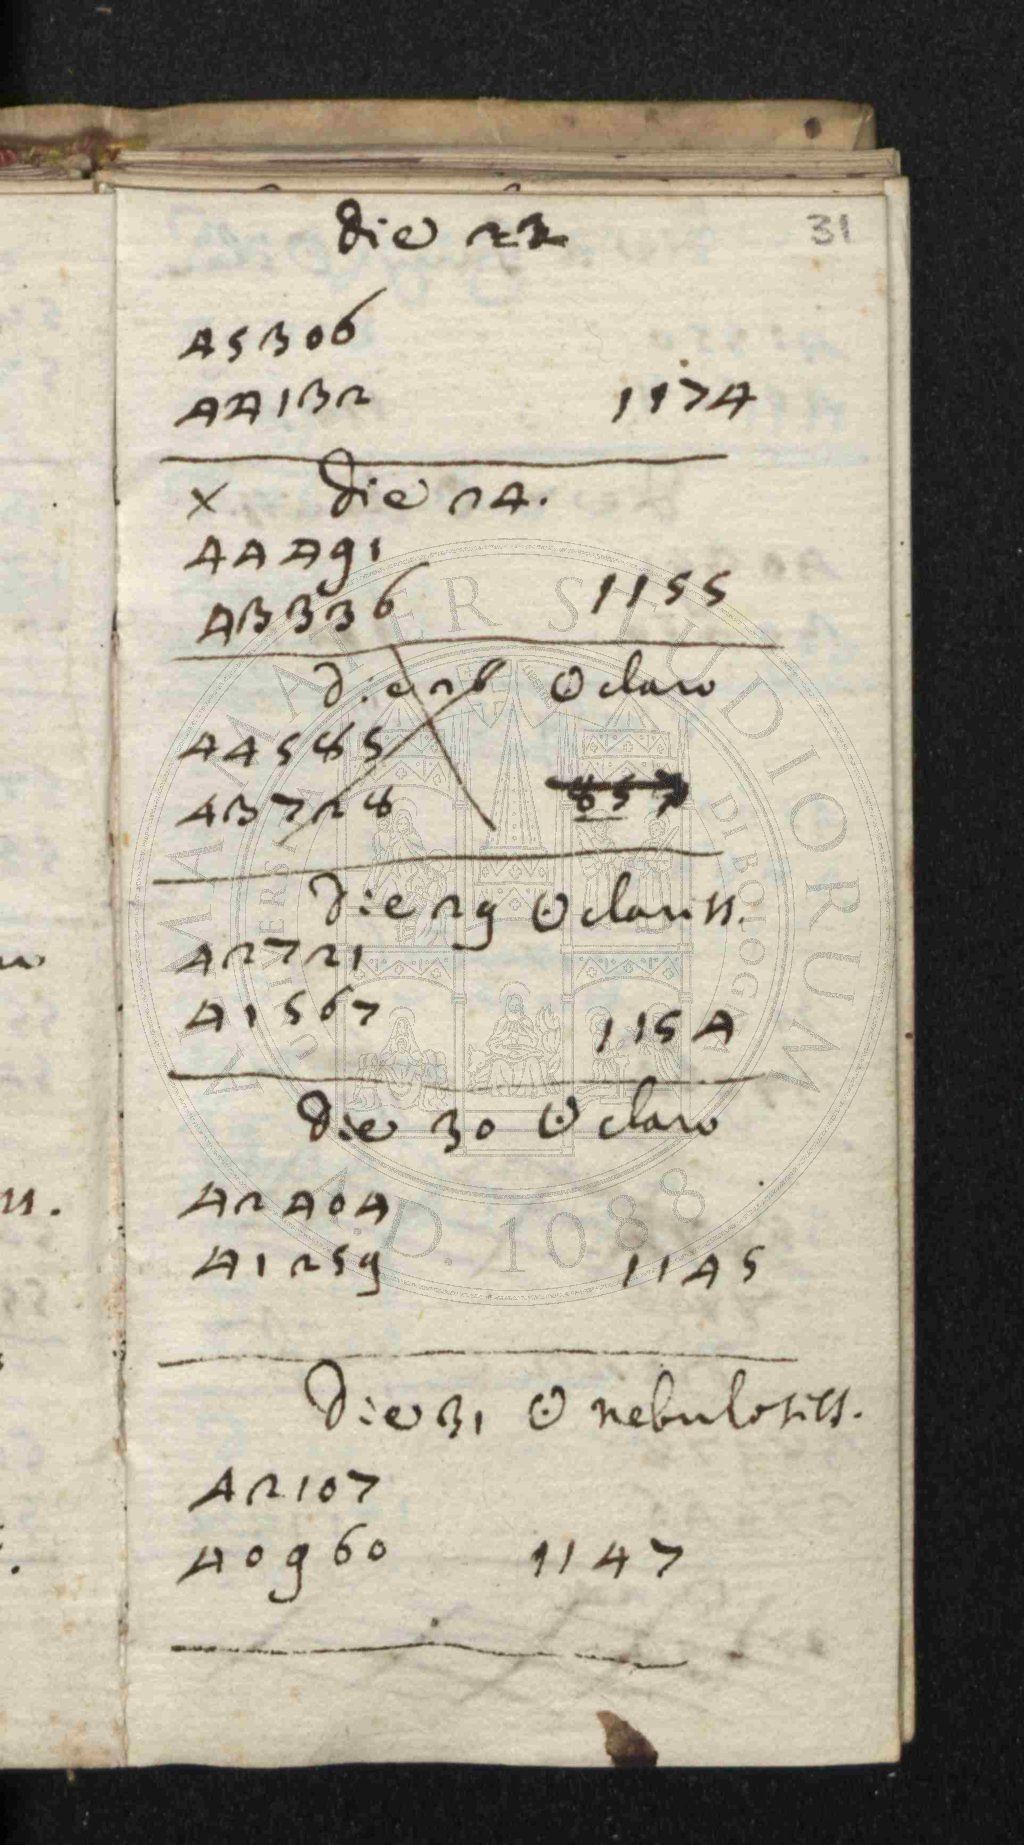 31
die
45306
44132 1174
x die 24.
44491
43336 1155
die 26 ☉ claro
44585
43728 857
die 29 ☉ clariss.
42721
41567 1154
die 30 ☉ claro
42404
41259 1145
die 31 ☉ nebulosiss.
42107
40960 1147
ALMA MATER STUDIORUM
A.D. 1088
UNIVERSITÀ DI BOLOGNA